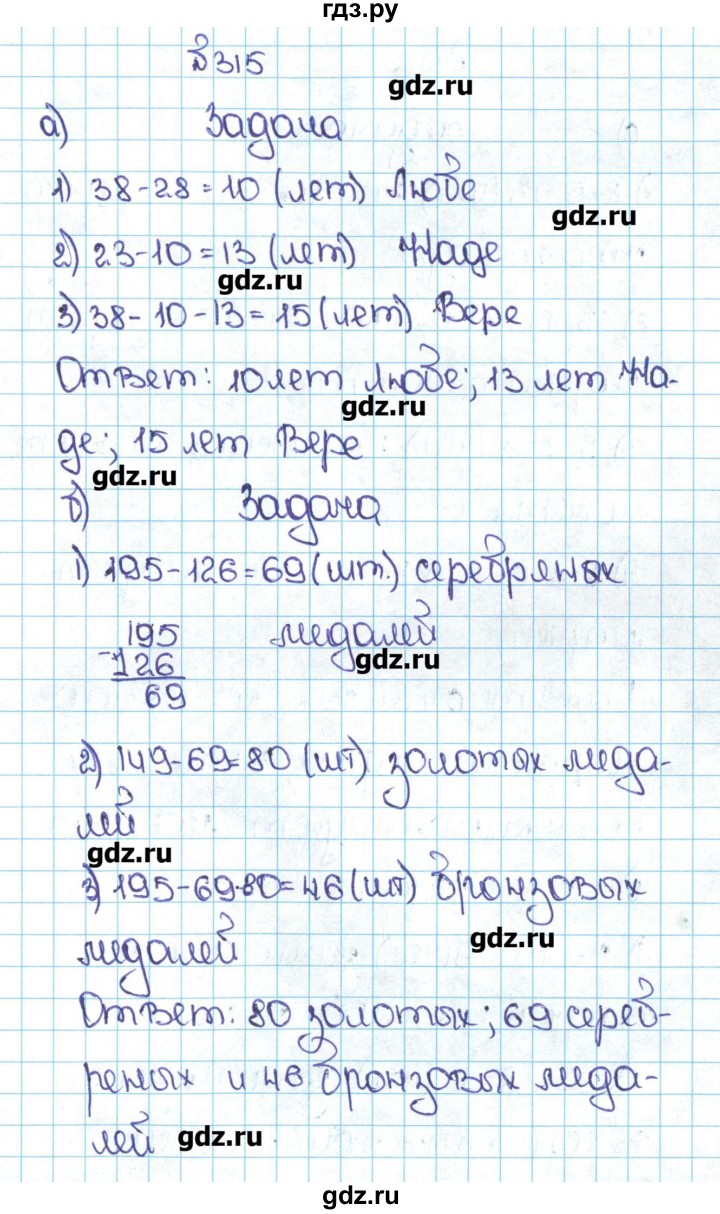 гдз.ру
№315
gdz.ru
а) Задача
1) 38-28=10 (лет) Любе
gdz.ru
2) 23-10=13 (лет) Наде
gdz.ru
3) 38-10-13=15 (лет) Вере
Ответ: 10 лет Любе; 13 лет На-
gdz.ru
де; 15 лет Вере
gdz.ru
б) Задача
1) 195-126=69 (шт.) серебряных
195 медалей
gdz.ru
-126
69
2) 149-69=80 (шт) золотых меда-
лей
gdz.ru
3) 195-69-80=46 (шт) бронзовых
gdz.ru
медалей
Ответ: 80 золотых; 69 сереб-
реных и 46 бронзовых меда-
лей
gdz.ru
gdz.ru